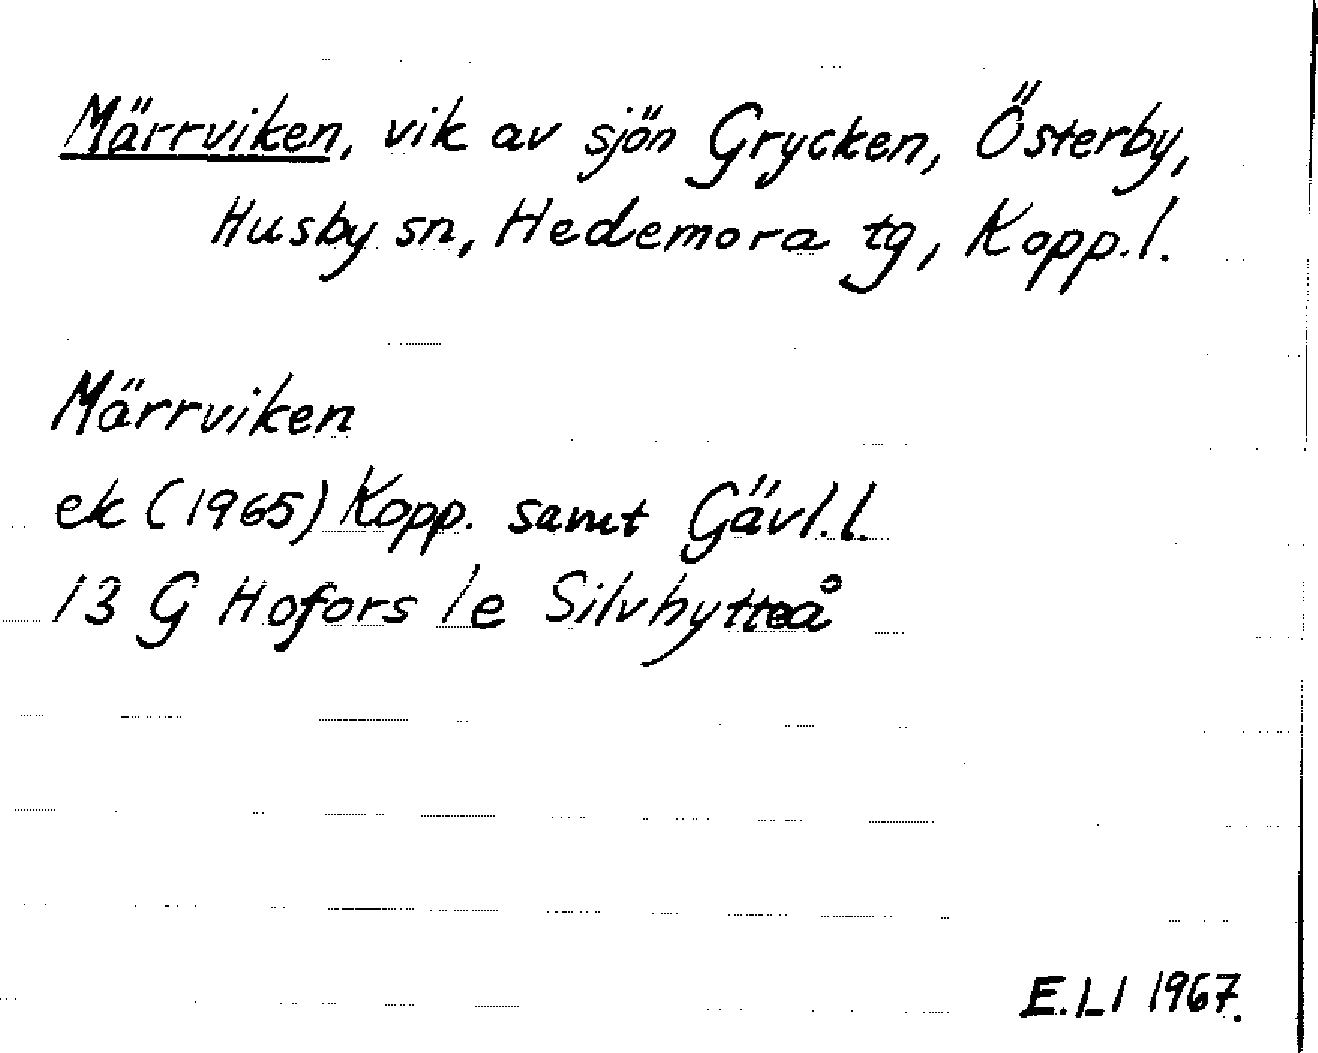 Märrviken, vik av sjön Grycken, Österby,
Husby sn, Hedemora tg, Kopp. l.
Märrviken
ek (1965) Kopp. samt Gävl. l.
13 G Hofors 1e Silvhytteå
E.Ll 1967.